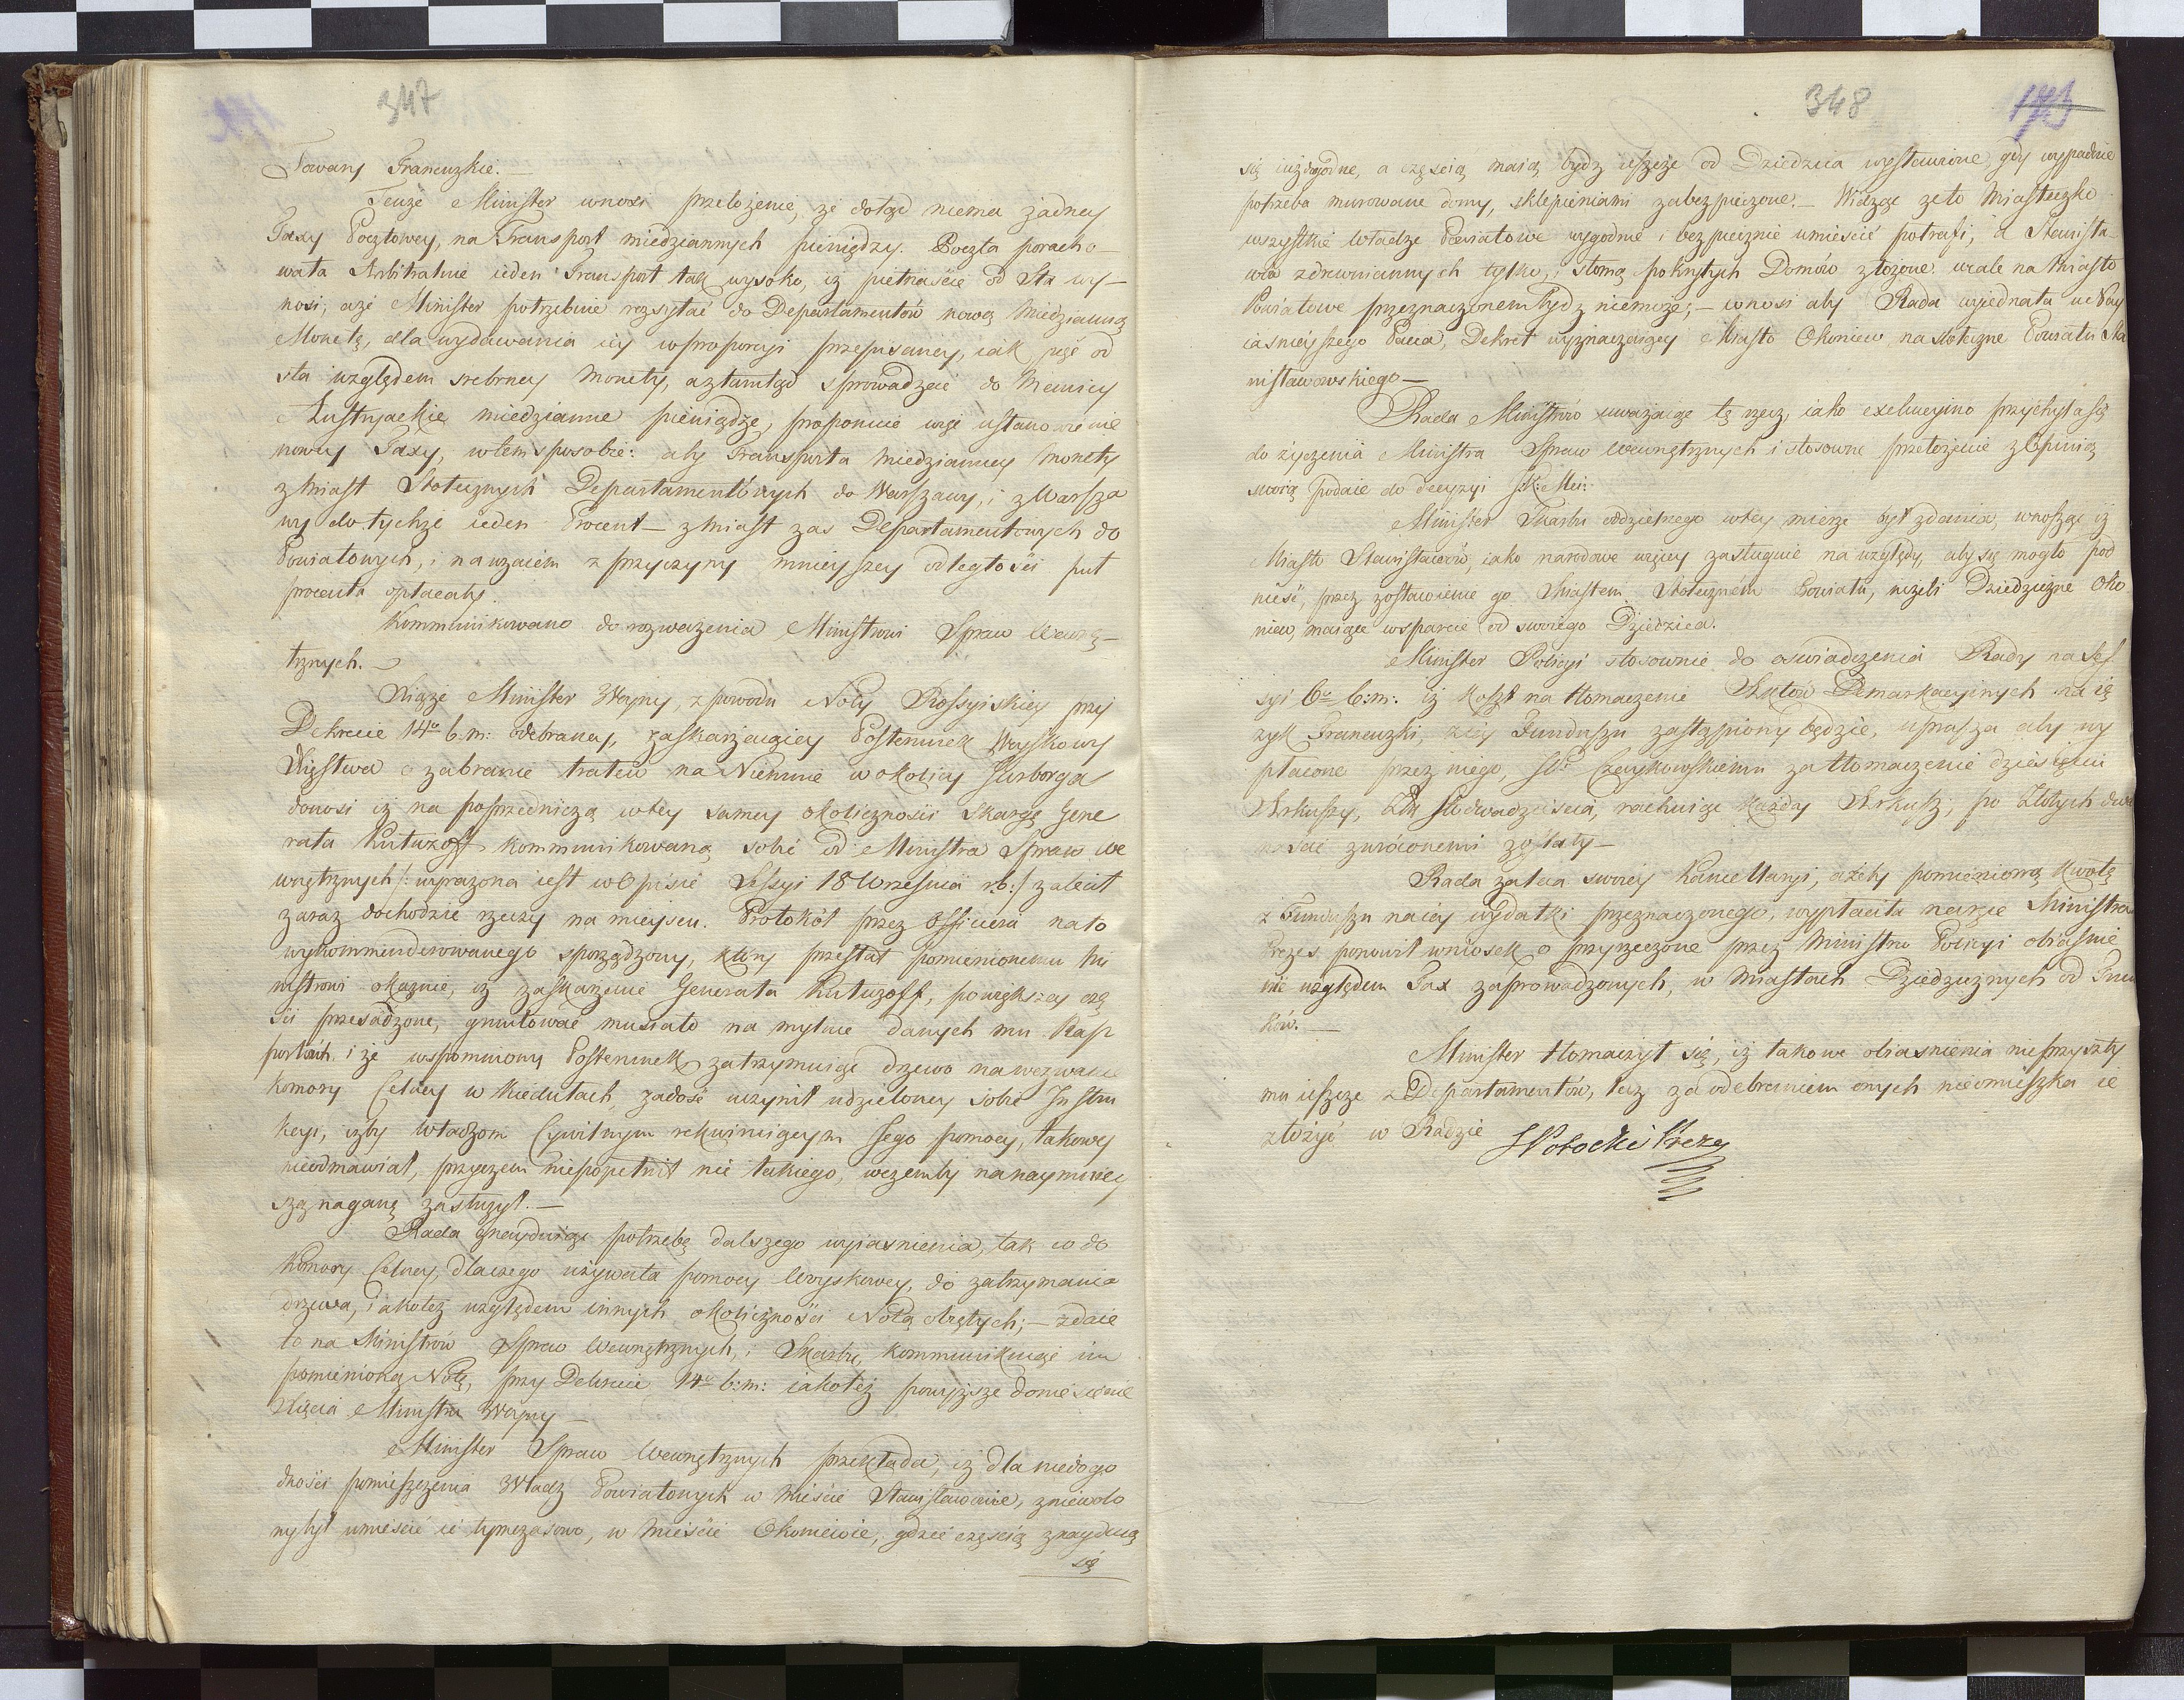 347
Towary Francuzkie. —
Tenże Minister wnosi przełożenie, że dotąd niema żadney
Taxy Pocztowey, na Transport miedziannych pieniędzy. Poczta poracho-
wała Arbitralnie ieden Transport tak wysoko, iż pietnaście od Sta wy-
nosi, aże Minister potrzebuie rozsyłać do Departamentów nową Miedzianną
Monetę, dla wydawania iey w proporcyi przepisaney, iak pięć od
sta względem srebrney Monety, aztamtąd sprowadzać do Mennicy
Austryackie miedzianne pieniądze, proponuie więc ustanowienie
nowey Taxy, wtem sposobie: aby Transporta Miedzianney Monety
z Miast Stołecznych Departamentowych do Warszawy, i z Warsza
wy do tychże ieden Procent — z Miast zas Departamentowych do
Powiatowych, i nawzaiem z przyczyny mnieyszey odległości puł
procenta opłacały.
Kommunikowano do rozważenia Ministrowi Spraw Wewnę-
trznych. —
Xiąże Minister Woyny, z powodu Noty Rossyiskiey przy
Dekrecie 14º b: m: odebraney, zaskarżaiącey Posterunek Woyskowy
Xięstwa o zabranie tratew na Niemnie w okolicy Jurborga
donosi iż na poprzedniczą wtey samey okoliczności Skargę Gene
rała Kutuzoff kommunikowaną sobie od Ministra Spraw We
wnętrznych /: wyrażona iest w Opisie Sessyi 18 Września rb:/ zalecił
zaraz dochodzić rzeczy na mieyscu. Protokół przez Officera na to
wykommenderowanego sporządzony, który przesłał pomienionemu Mi
nistrowi okazuie, iż zaskarżenie Generała Kutuzoff, powiększey czę
ści przesadzone, gruntować musiało na mylnie danych mu Rap
portach i że wspomniony Posterunek zatrzymuiąc drzewo na wezwanie
komory Celney w Kiedułach, zadość uczynił udzieloney sobie Instru
kcyi, iżby Władzom Cywilnym rekwiruiącym Jego pomocy, takowey
nieodmawiał, przyczem niepopełnił nic takiego, wczemby nanaymniey
szą naganę zasłużył. —
Rada znayduiąc potrzebę dalszego wyiasnienia, tak co do
Komory Celney, dlaczego używała pomocy Woyskowey, do zatrzymania
drzewa, iakoteż względem innych okoliczności Notą obiętych; — zdaie
to na Ministrów Spraw Wewnętrznych, i Skarbu, kommunikuiąc im
pomienioną Notę, przy Dekrecie 14º b: m: iakoteż powyższe doniesienie
Xięcia Ministra Woyny —
Minister Spraw Wewnętrznych przekłada, iż dla niedogo
dności pomieszczenia Władz Powiatowych w Mieście Stanisławowie, zniewolo
ny był umieścić ie tymczasowo, w Mieście Okoniewie, gdzie częścią znayduią
się
348
173
się iuż dogodne, a częscią maią bydz ieszcze od Dziedzica wystawione, gdy wypadnie
potrzeba murowane domy, sklepieniami zabezpieczone. — Widząc że to Miasteczko
wszystkie Władze Powiatowe wygodnie i bezpiecznie umieścić potrafi, a Stanisła-
wów z drewniannych tylko, i słomą pokrytych Domów złożone wcale na Miasto
Powiatowe przeznaczonem bydz niemoże; — wnosi aby Rada wyiednała u Nay
iaśnieyszego Pana, Dekret wyznaczaiący Miasto Okoniew, na stołeczne Powiatu Sta
nisławowskiego —
Rada Ministrów uważaiąc tę rzecz, iako exekucyino przychyla się
do życzenia Ministra Spraw Wewnętrznych i stosowne przełożenie z Opinią
swoią podaie do decyzyi J: K: Mci:
Minister Skarbu oddzielnego wtey mierze był zdania, wnosząc iż
Miasto Stanisławów, iako narodowe więcey zasługuie na względy, aby się mogło pod
nieść, przez zostawienie go Miastem Stołecznem Powiatu, niżeli Dziedziczne Oko
niew, maiące wsparcie od swoiego Dziedzica.
Minister Policyi stosownie do oswiadczenia Rady na Ses
syi 6º b: m: iż koszt na tłomaczenie Aktów Demarkacyinych na ię
zyk Francuzki, z iey Funduszu zastąpiony będzie, uprasza aby wy
płacone przez niego, JP. Czaykowskiemu za tłomaczenie dziesięciu
Arkuszy, Złł. stodwadzieścia, rachuiąc każdy Arkusz, po Złotych dwa
naście zwróconemi zostały —
Rada zaleca swoiey Kancellaryi, ażeby pomienioną kwotę
z Funduszu na iey wydatki przeznaczonego, wypłaciła na ręce Ministra
Prezes ponowił wniosek o przyrzeczone przez Ministra Policyi obiasnie
nie względem Tax zaprowadzonych, w Miastach Dziedzicznych od Trun
ków. —
Minister tłomaczył się, iż takowe obiasnienia nieprzyszły
mu ieszcze z Departamentów, lecz za odebraniem onych nieomieszka ie
złożyć w Radzie
SPotocki Prezes